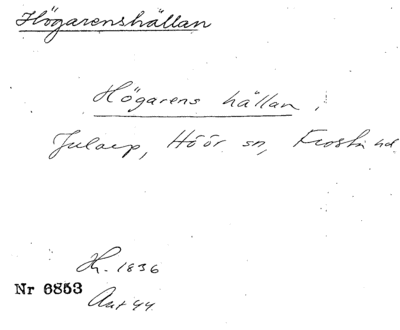 Högarenshällan
Högarens hällan,
Julaep, Höör sn, Frosta hd
Hr. 1836
Nr 6853
Ant 44